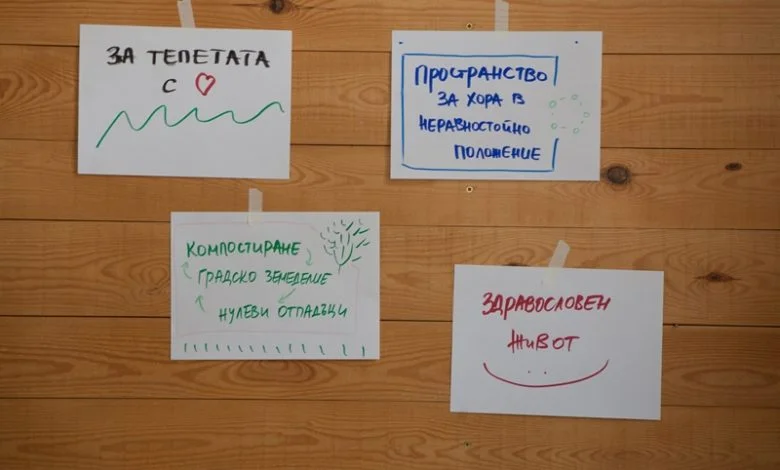 ЗА ТЕПЕТАТА
С ♡
ПРОСТРАНСТВО
ЗА ХОРА В
НЕРАВНОСТОЙНО
ПОЛОЖЕНИЕ
КОМПОСТИРАНЕ
ГРАДСКО ЗЕМЕДЕЛИЕ
НУЛЕВИ ОТПАДЪЦИ
ЗДРАВОСЛОВЕН
ЖИВОТ